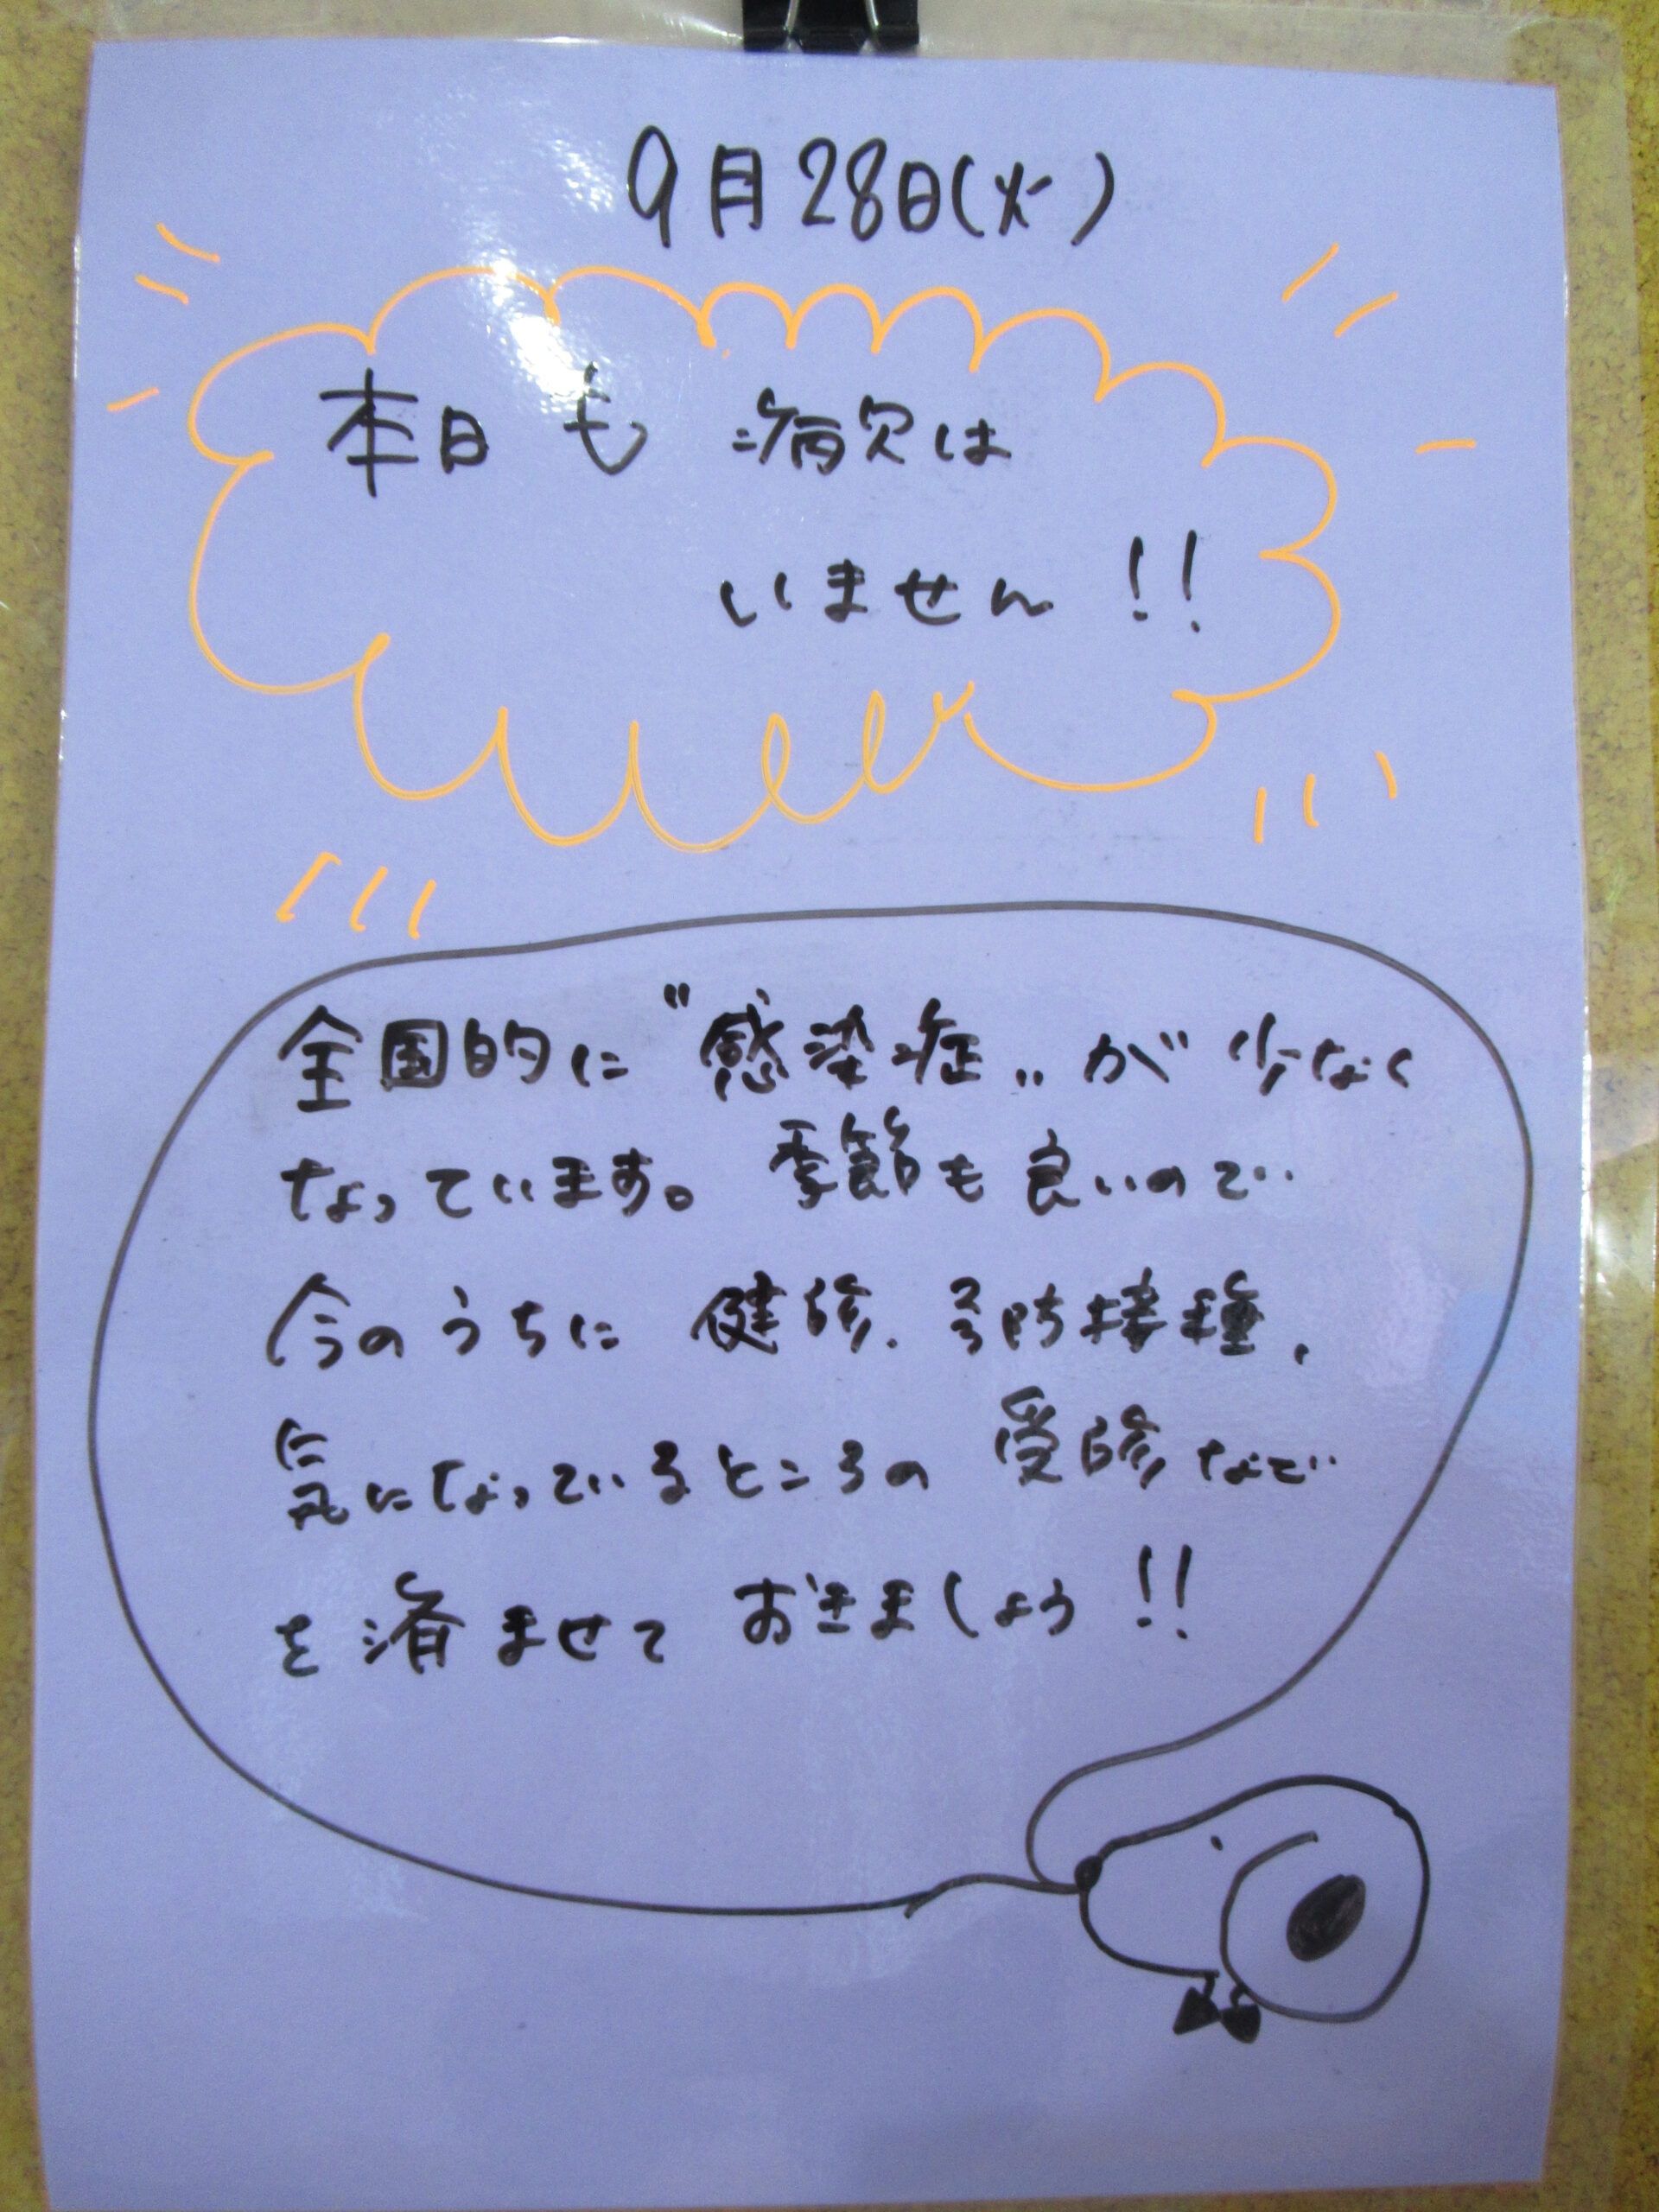 9月28日(火)
本日も 病欠は
いません!!
全国的に〝感染症〟が少なく
なっています。季節も良いので
今のうちに 健診、予防接種、
気になっているところの 受診など
を済ませて おきましょう!!